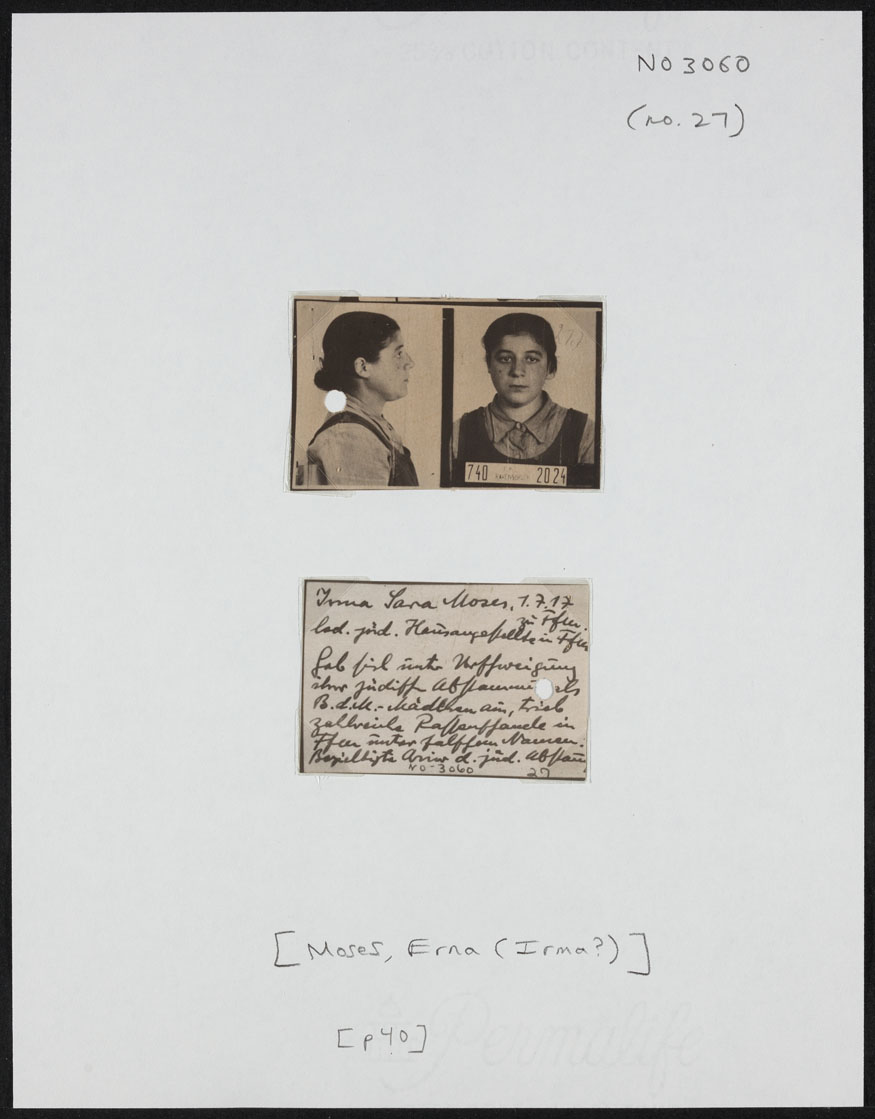 NO 3060
(no. 27)
740 2024
Irma Sara Moses, 1.7.17
zu Ffm.
led. jüd. Hausangestellte in Ffm
Gab sich unter Verschweigung
ihrer jüdischen Abstammung als
B.d.M.-Mädchen aus, trieb
zahlreiche Rassenschande in
Ffm unter falschem Namen.
d. jüd.
NO-3060 27
[Moses, Erna (Irma?)]
[p40]
Permalife